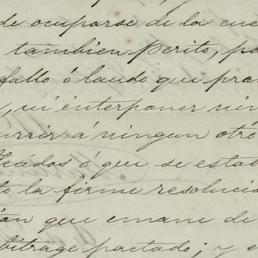 de ocuparse de la cue
tambien perito, po
fallo ó laudo que pre
, ni interponer nin
urrir á ningun otro
ó que se estab
la firme resolució
que emane de
bitrage pactado; y e